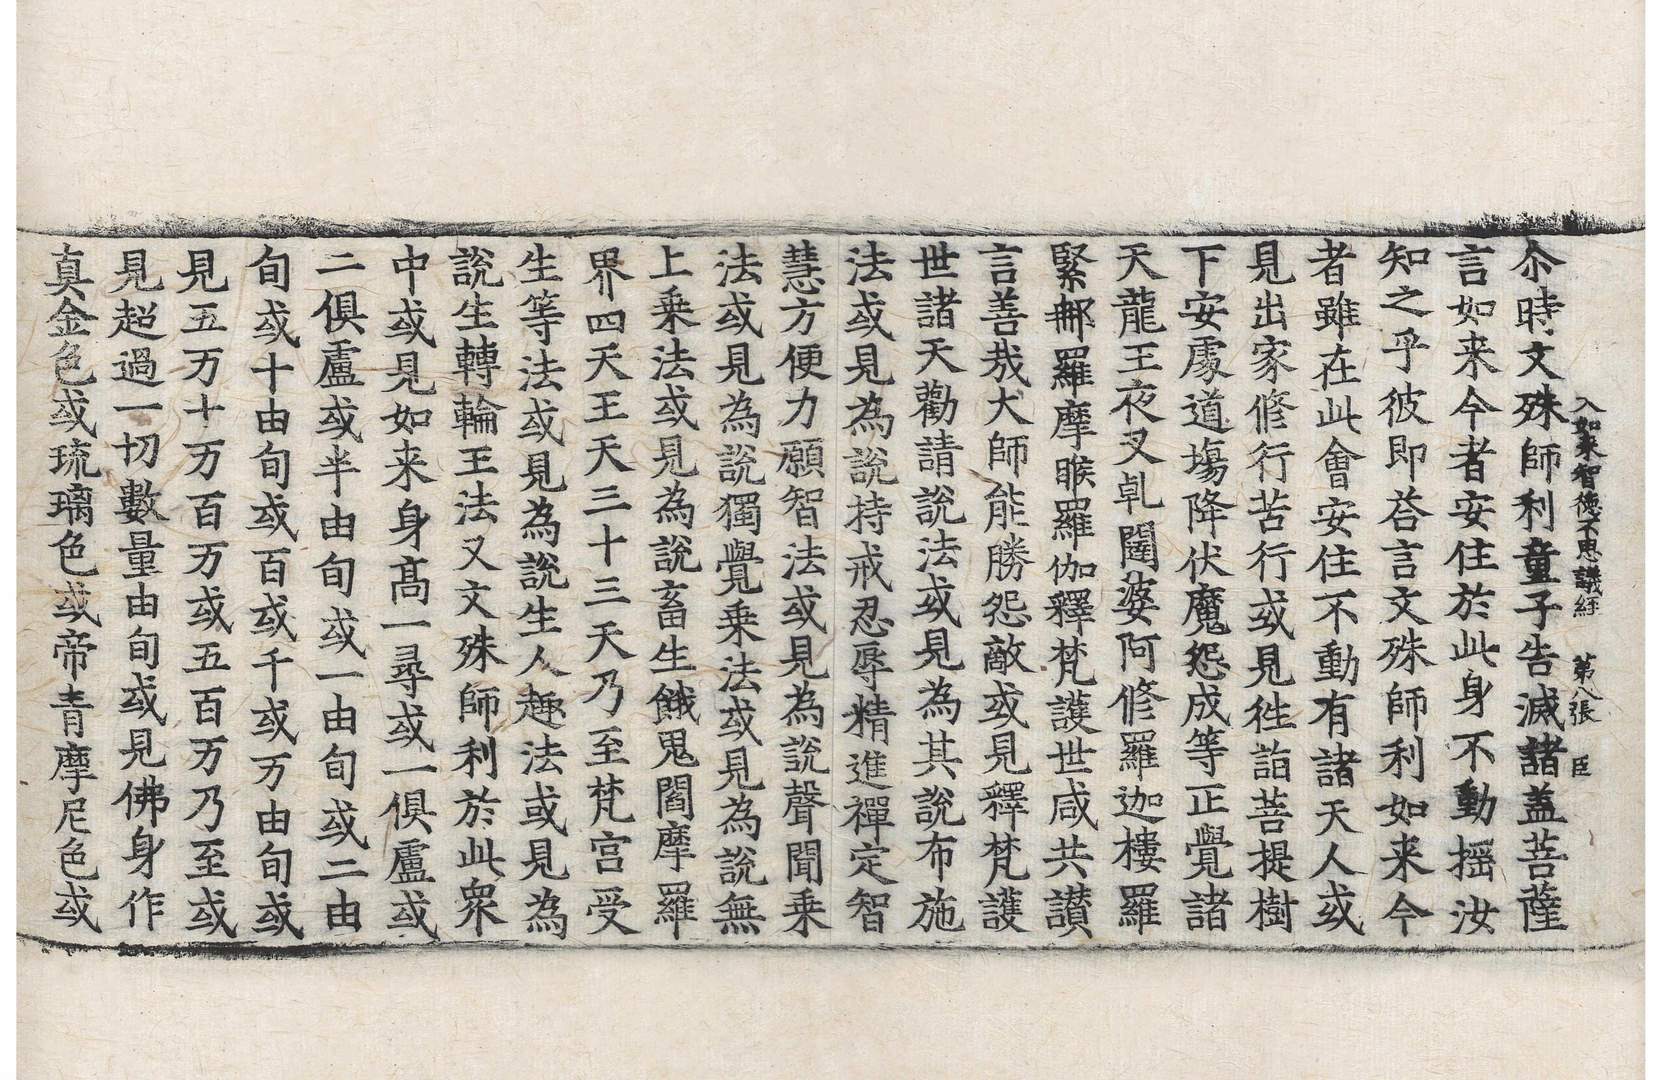 入如来智德不思議経 第八張 臣
尒時文殊師利童子告滅諸盖菩薩
言如来今者安住於此身不動揺汝
知之乎彼即荅言文殊師利如来今
者雖在此會安住不動有諸天人或
見出家修行苦行或見徃詣菩提樹
下安處道場降伏魔怨成等正覺諸
天龍王夜叉乹闥婆阿修羅迦樓羅
緊那羅摩睺羅伽釋梵護世咸共讃
言善哉大師能勝怨敵或見釋梵護
世諸天勸請說法或見為其說布施
法或見為說持戒忍辱精進禪定智
慧方便力願智法或見為說聲聞乗
法或見為說獨覺乗法或見為說無
上乗法或見為說畜生餓鬼閻摩羅
界四天王天三十三天乃至梵宫受
生等法或見為說生人趣法或見為
說生轉輪王法又文殊師利於此衆
中或見如来身髙一尋或一俱盧或
二俱盧或半由旬或一由旬或二由
旬或十由旬或百或千或万由旬或
見五万十万百万或五百万乃至或
見超過一切數量由旬或見佛身作
真金色或琉璃色或帝青摩尼色或